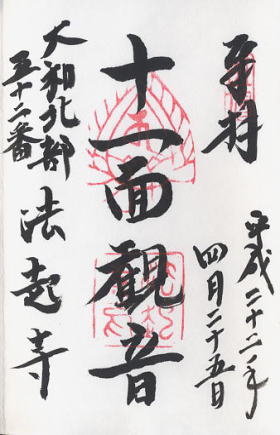 奉拝
平成二十二年
四月二十五日
十一面観音
大和北部
五十二番
法起寺